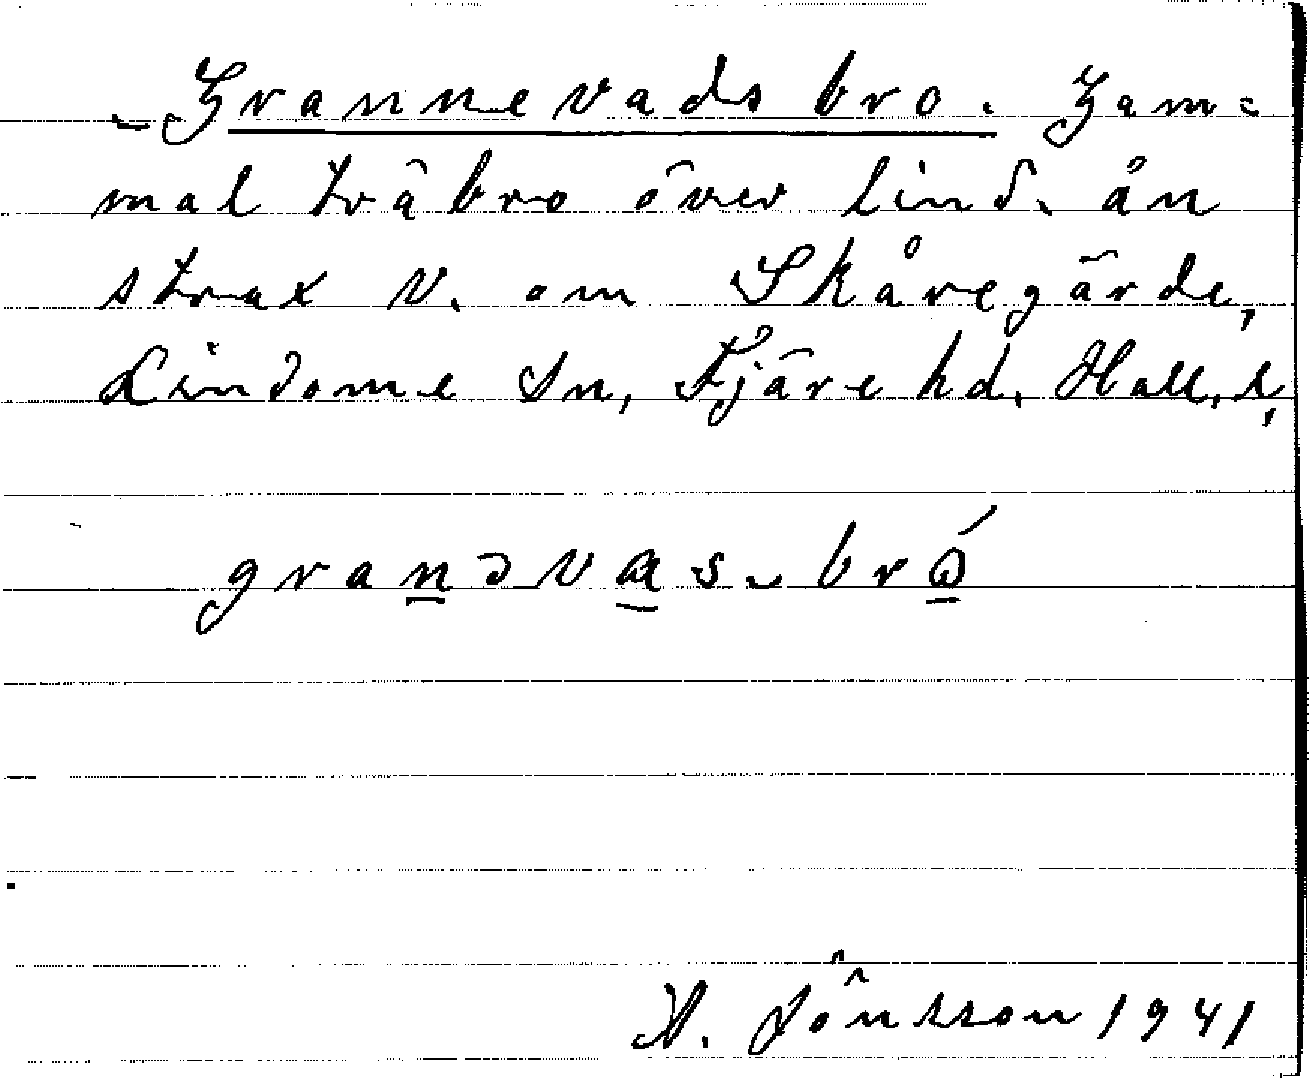 Grannevads bro. Gam=
mal träbro över Lind. ån
strax v. om Skåregärde,
Lindome Sn, Fjäre hd. Hall. l,
granəvas-bró
H. Jönsson 1941